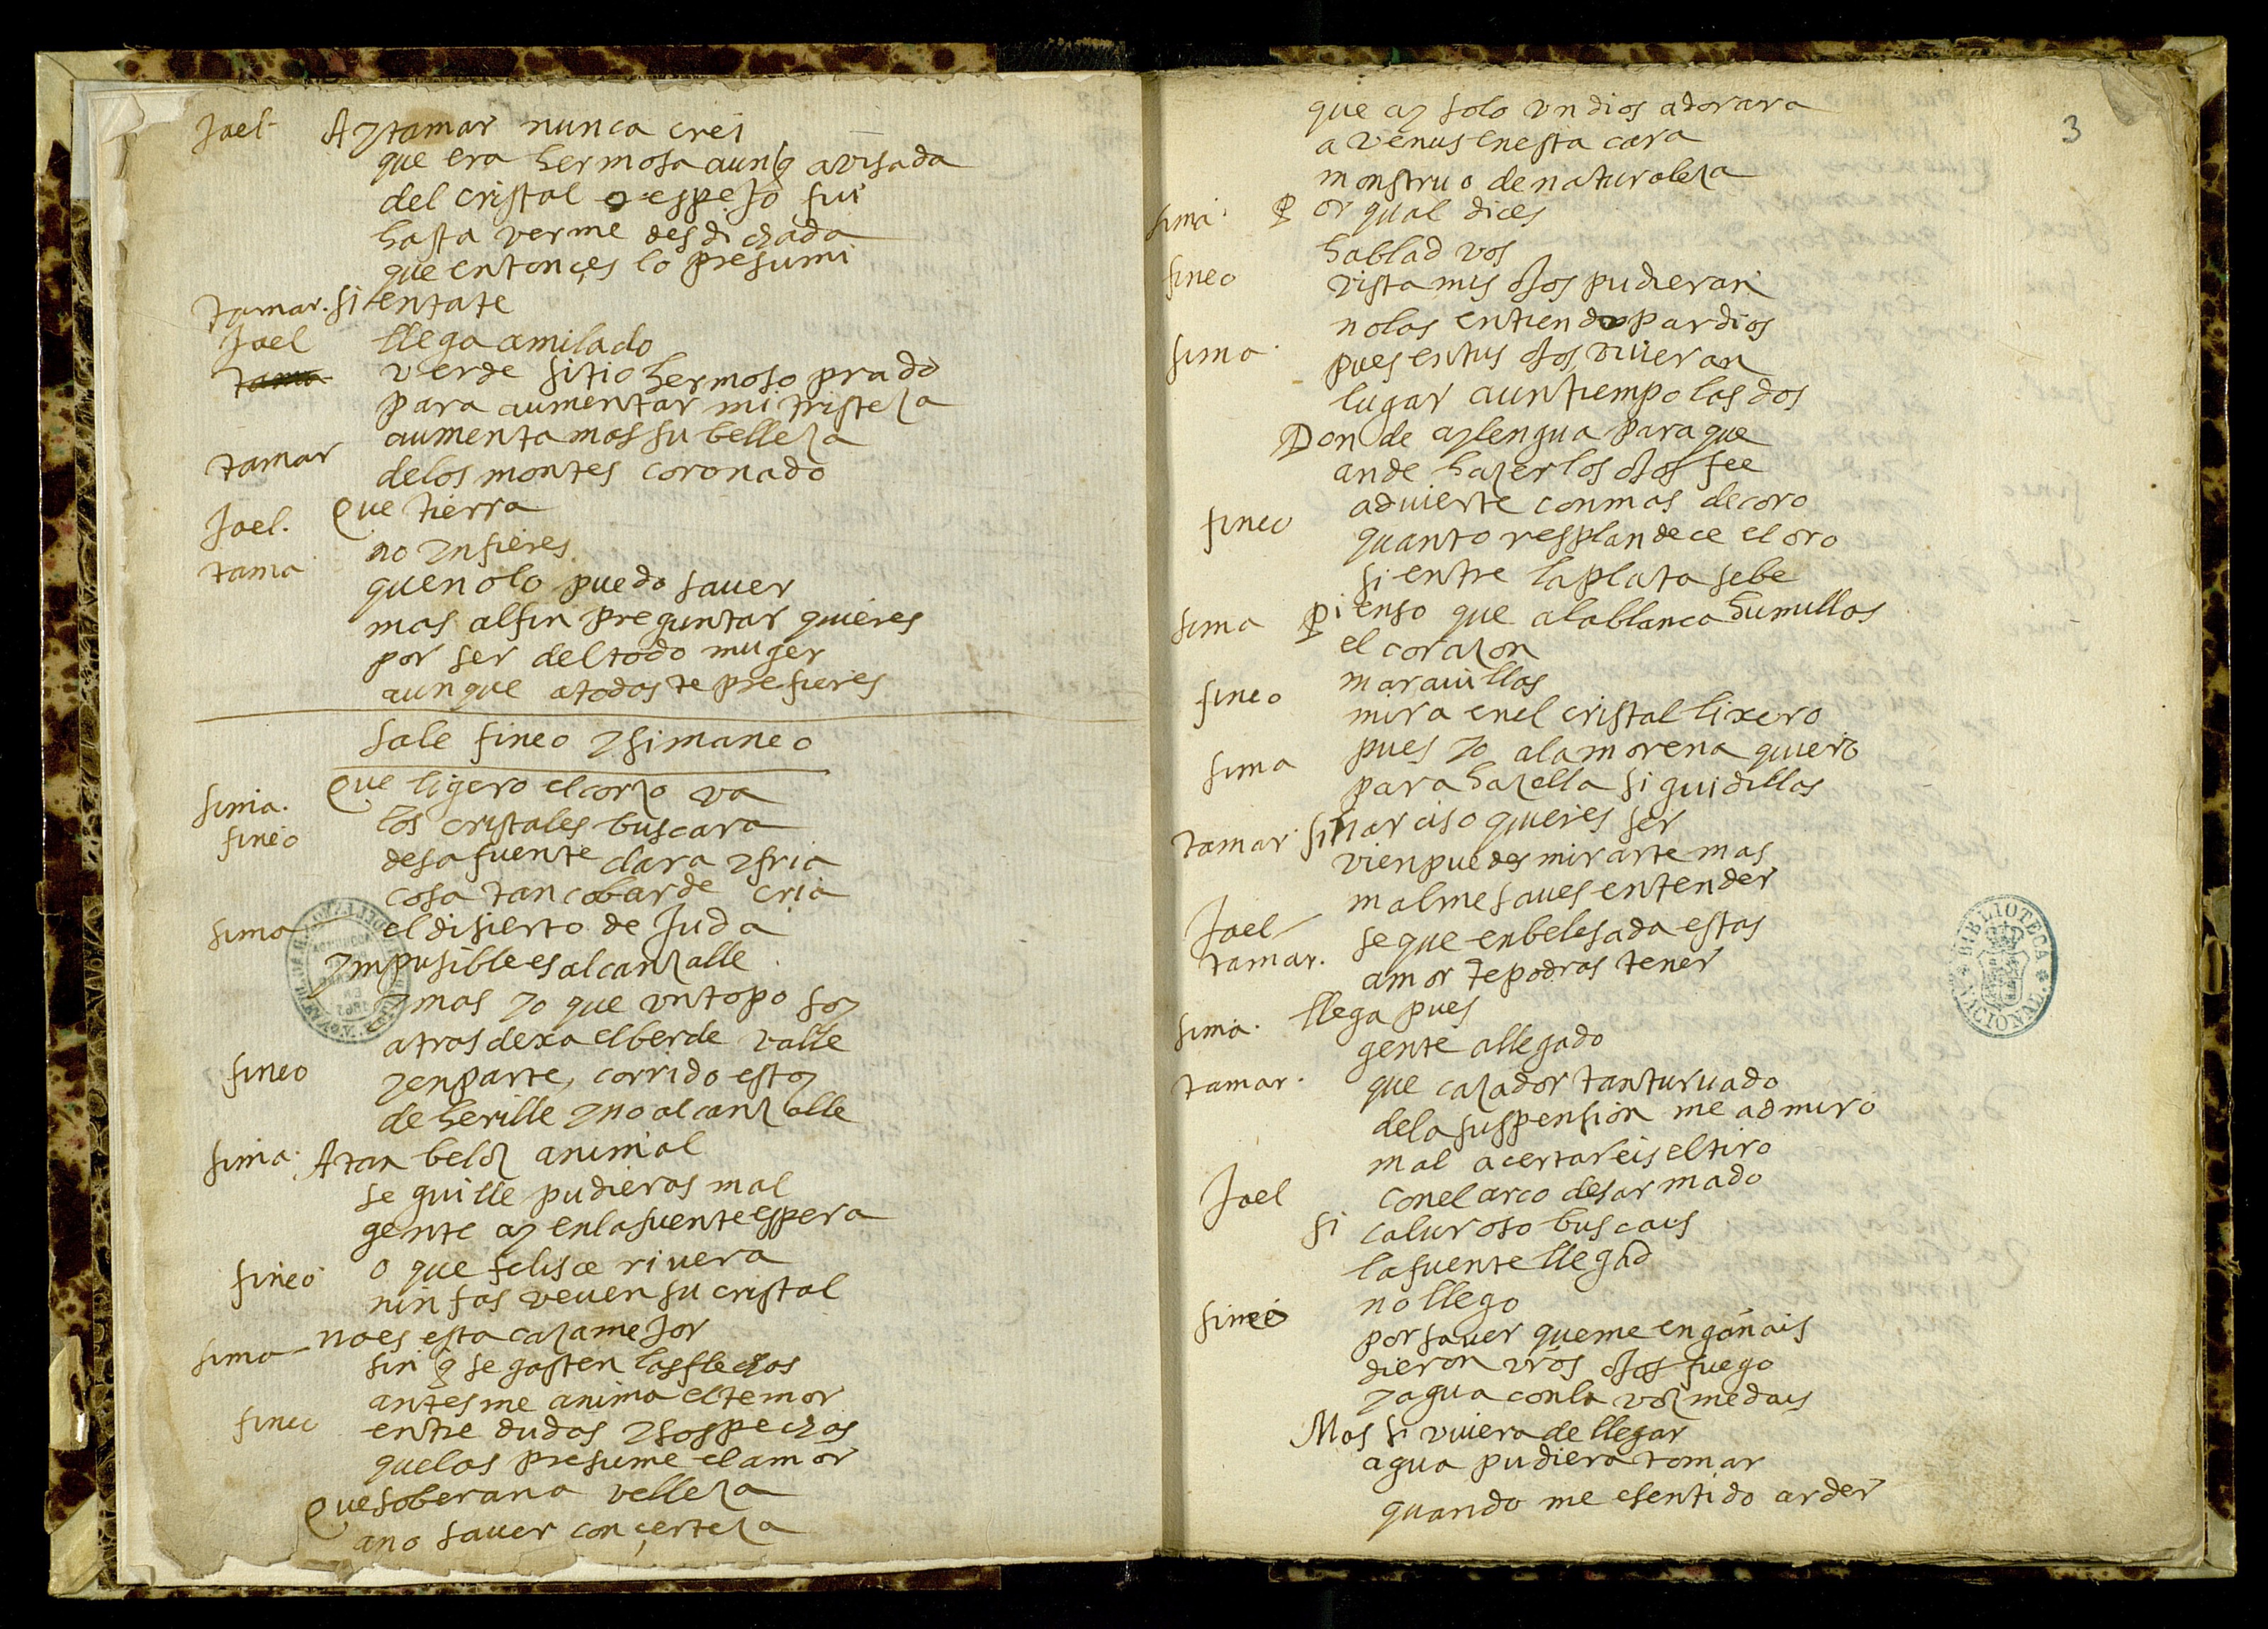 Jael Ay tamar nunca crei
que era hermosa aunq̃ avisada
del cristal o espejo fui
hasta verme desdichada
que entonçes lo presumi
tamar. sientate
Jael llega a mi lado
verde sitio hermoso prado
para aumentar mi tristeza
aumenta mas su belleza
tamar de los montes coronado
Jael. Que tierra
tama no ynfieres
que no lo puedo saver
mas al fin preguntar quieres
por ser del todo muger
aunque a todas te prefieres
sale fineo y simaneo
sima. Que ligero el corzo va
fineo los cristales buscara
desa fuente clara y fria
cosa tan cobarde cria
sima el disierto de Juda
ymposible es alcanzalle
y mas yo que un topo soy
atras dexa el berde valle
fineo y en parte, corrido estoy
de herille y no alcanzalle
sima. A tan beloz animal
seguille pudieras mal
gente ay en la fuente espera
fineo o que felisce rivera
ninfas veven su cristal
sima no es esta caza mejor
sin q̃ se gasten las flechas
antes me anima el temor
fineo entre dudas y sospechas
que las presume el amor
Que soberana velleza
a no saver con çerteza
3
que ay solo un dios adorara
a venus en esta cara
monstruo de naturaleza
sima. Por qual dices
hablad vos
fineo vista mis ojos pudieran
no las entiendo par dios
sima. pues en tus ojos uvieran
lugar a un tiempo las dos
Donde ay lengua para que
an de hazer los ojos fee
fineo advierte con mas decoro
quanto resplandece el oro
si entre la plata sebe
sima Pienso que a la blanca humillas
el corazon
fineo maravillas
mira en el cristal lixero
sima pues yo a la morena quiero
para hazella siguidillas
tamar. si narciso quieres ser
vien puedes mirarte mas
Jael mal me saves entender
tamar. se que enbelesada estas
amor te podras tener
sima. llega pues
gente a llegado
tamar. que cazador tan turvado
de la suspension me admiro
mal acertareis el tiro
Jael con el arco desarmado
si caluroso buscais
la fuente llegad
fineo no llego
por saver que me engañais
dieron vr̃os ojos fuego
y agua con la voz me dais
Mas si uviera de llegar
agua pudiera tomar
quando me e sentido arder
BIBLIOTECA NACIONAL